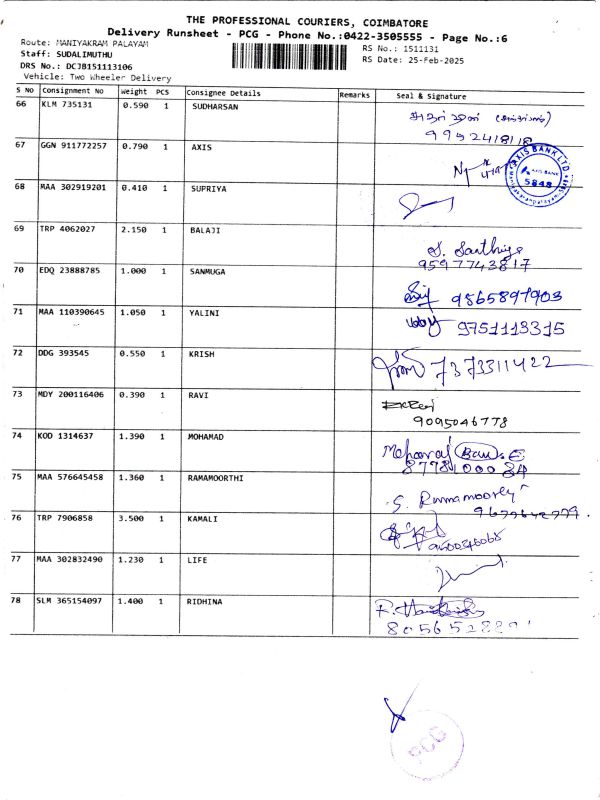 THE PROFESSIONAL COURIERS, COIMBATORE
Delivery Runsheet - PCG - Phone No.:0422-3505555 - Page No.:6
Route: MANIYAKRAM PALAYAM
RS No.: 1511131
Staff: SUDALIMUTHU
RS Date: 25-Feb-2025
DRS No.: DCJB151113106
Vehicle: Two Wheeler Delivery
S No Consignment No Weight PCS Consignee Details Remarks Seal & Signature
66 KLM 735131 0.590 1 SUDHARSAN
9952418118
67 GGN 911772257 0.790 1 AXIS
AXIS BANK LTD
AXIS BANK
5848
68 MAA 302919201 0.410 1 SUPRIYA
69 TRP 4062027 2.150 1 BALAJI
S. Santhiya
9597743817
70 EDQ 23888785 1.000 1 SANMUGA
9865897903
71 MAA 110390645 1.050 1 YALINI
9751113315
72 DDG 393545 0.550 1 KRISH
7373311422
73 MDY 200116406 0.390 1 RAVI
9095046778
74 KOD 1314637 1.390 1 MOHAMAD
75 MAA 576645458 1.360 1 RAMAMOORTHI
S. Ramamoorthy
76 TRP 7906858 3.500 1 KAMALI
77 MAA 302832490 1.230 1 LIFE
78 SLM 365154097 1.400 1 RIDHINA
PCG